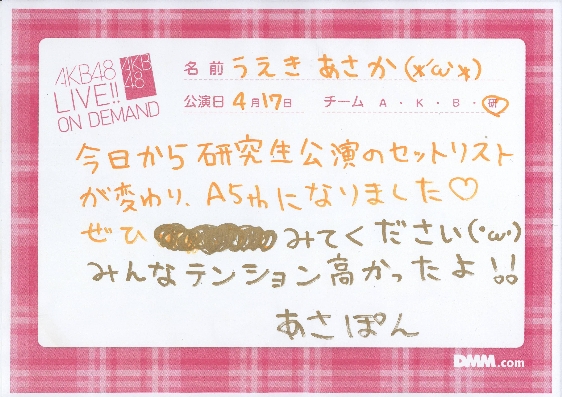 AKB48
LIVE!!
ON DEMAND
AKB
48
名前 うえき あさか (*´ω`*)
公演日 4月17日 チーム A・K・B・研
今日から研究生公演のセットリスト
が変わり、A5thになりました♡
ぜひ みてください(・ω・)
みんなテンション高かったよ!!
あさぽん
DMM.com